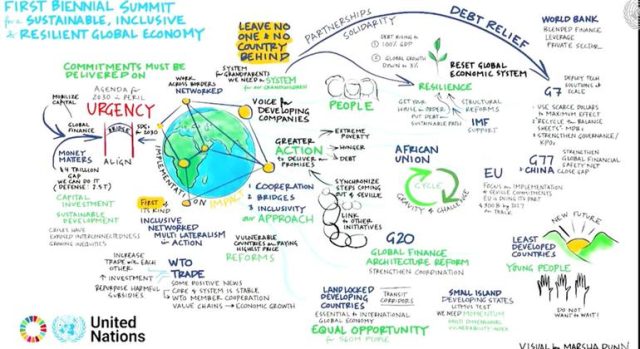 FIRST BIENNIAL SUMMIT
for a SUSTAINABLE, INCLUSIVE
& RESILIENT GLOBAL ECONOMY
LEAVE NO
ONE & NO
COUNTRY
BEHIND
PARTNERSHIPS
SOLIDARITY
DEBT RELIEF
WORLD BANK
BLENDED FINANCE
LEVERAGE
PRIVATE SECTOR
COMMITMENTS MUST BE
DELIVERED ON
AGENDA for
2030 in PERIL
URGENCY
MOBILIZE
CAPITAL
GLOBAL
FINANCE
BRIDGE
SDGs
for 2030
ALIGN
MONEY
MATTERS
$4 TRILLION
GAP
WE CAN DO IT
CAPITAL
INVESTMENT
SUSTAINABLE
DEVELOPMENT
CRISES HAVE
EXPOSED INTERCONNECTEDNESS
GROWING INEQUITIES
WORK
ACROSS BORDERS
NETWORKED
SYSTEM
for GRANDPARENTS
WE NEED a SYSTEM
for our GRANDCHILDREN
VOICE for
DEVELOPING
COMPANIES
IMPLEMENTATION IMPACT
GREATER
ACTION
to DELIVER on
PROMISES
EXTREME
POVERTY
HUNGER
DEBT
PEOPLE
1 COOPERATION
2 BRIDGES
3 INCLUSIVITY
our APPROACH
SYNCHRONIZE
STEPS COMING
OUT of SEVILLE
LINK to
OTHER
INITIATIVES
FIRST of
ITS KIND
INCLUSIVE
NETWORKED
MULTI LATERALISM
in ACTION
VULNERABLE
COUNTRIES are PAYING
HIGHEST PRICE
REFORMS
INCREASE
TRADE with EACH
OTHER
↑ INVESTMENT
REPURPOSE HARMFUL
SUBSIDIES
WTO
TRADE
SOME POSITIVE NEWS
CORE of SYSTEM is STABLE
WTO MEMBER COOPERATION
VALUE CHAINS → ECONOMIC GROWTH
① DEBT RISING to
100% GDP
② GLOBAL GROWTH
DOWN to 3%
RESET GLOBAL
ECONOMIC SYSTEM
RESILIENCE
GET YOUR
HOUSE in ORDER
PUT DEBT on
SUSTAINABLE PATH
STRUCTURAL
REFORMS
IMF
SUPPORT
AFRICAN
UNION
CYCLE
GRAVITY & CHALLENGE
G20
GLOBAL FINANCE
ARCHITECTURE REFORM
STRENGTHEN COORDINATION
G7
DEPLOY TECH
SOLUTIONS at
SCALE
USE SCARCE DOLLARS
to MAXIMUM EFFECT
RECYCLE the BALANCE
SHEETS" MDBs
STRENGTHEN GOVERNANCE/
KPOs
G77
& CHINA
STRENGTHEN
GLOBAL FINANCIAL
SAFETY NET
CLOSE GAP
EU
FOCUS on IMPLEMENTATION
of SEVILLE COMMITMENTS
EU is DOING ITS PART
€ 300 B to 2027
ON TRACK
LEAST
DEVELOPED
COUNTRIES
NEW FUTURE
YOUNG PEOPLE
DO NOT
WANT to WAIT!
LAND LOCKED
DEVELOPING
COUNTRIES
TRANSIT
CORRIDORS
ESSENTIAL to INTERNATIONAL
GLOBAL ECONOMY
EQUAL OPPORTUNITY
SMALL ISLAND
DEVELOPING STATES
LITMUS TEST
WE NEED MOMENTUM
MULTI DIMENSIONAL
VULNERABILITY INDEX
United
Nations
VISUAL by MARSHA DUNN